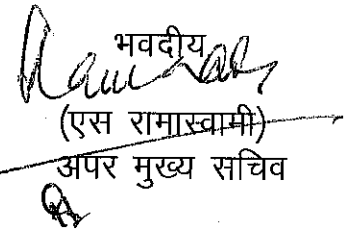 भवदीय
(एस रामास्वामी)
अपर मुख्य सचिव